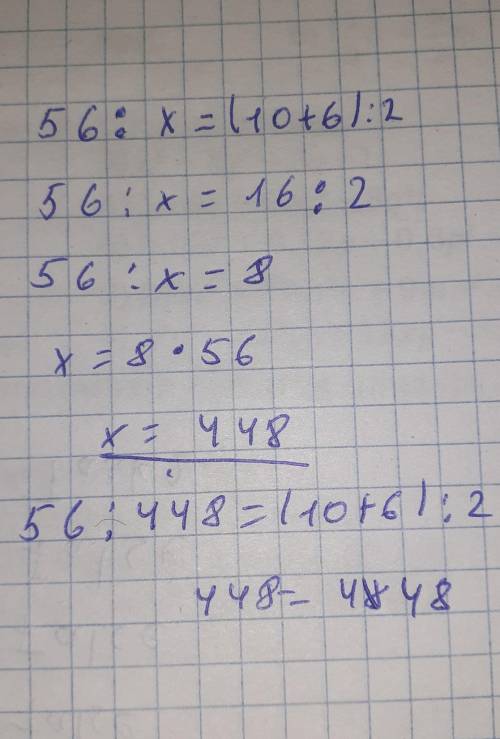 56 : x = (10+6) : 2
56 : x = 16 : 2
56 : x = 8
x = 8 · 56
x = 448
56 : 448 = (10+6) : 2
448 = 448